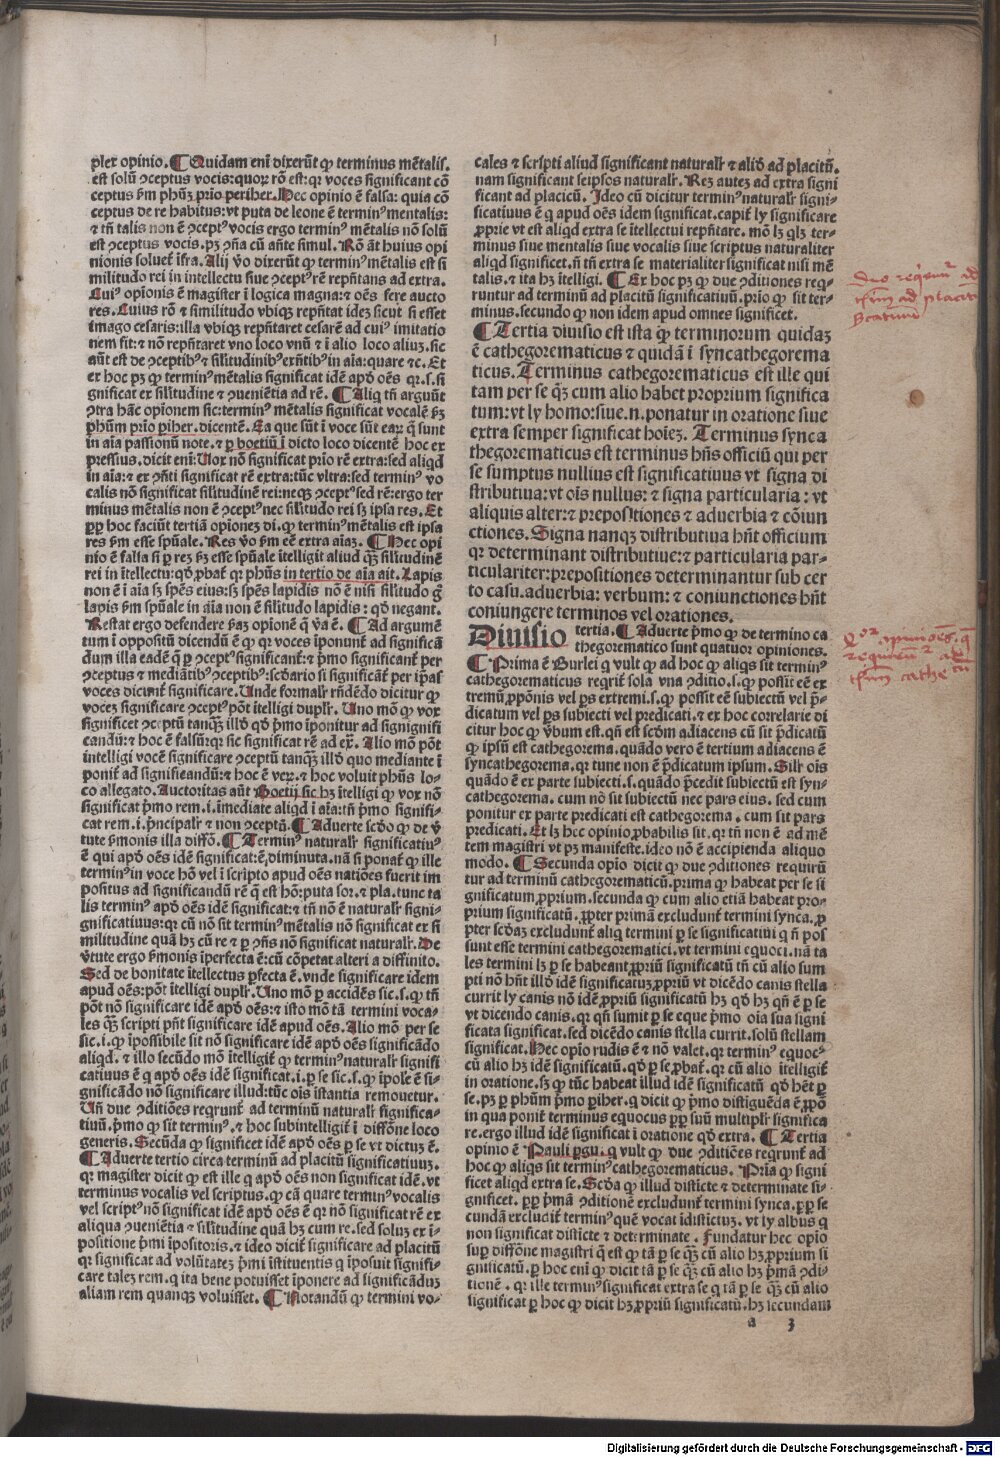 plex opinio. ¶ Quidam enī dixerūt ꝙ terminus mētalis.
est solū ꝯceptus vocis: quoꝝ rō est: qꝛ voces significant cō
ceptus ꝑm phūꝫ prīo periher. Hec opinio ē falsa: quia cō
ceptus de re habitus: vt puta de leone ē terminꝰ mentalis:
⁊ tñ talis non ē ꝯceptꝰ vocis ergo terminꝰ mētalis nō solū
est ꝯceptus vocis. pꝫ ꝯña cū añte simul. Rō āt huius opi
nionis soluet̄ īfra. Alij v̄o dixerūt ꝙ terminꝰ mētalis est si
militudo rei in intellectu siue ꝯceptꝰ rē repñtans ad extra.
Cuiꝰ opīonis ē magister ī logica magna: ⁊ oēs fere aucto
res. Cuius rō ē similitudo vbiqꝫ repñtat ideꝫ sicut si esset
imago cesaris: illa vbiqꝫ repñtaret cesarē ad cuiꝰ imitatio
nem fit: ⁊ nō repñtaret vno loco vnū ⁊ ī alio loco aliuꝫ. sic
aūt est de ꝯceptibꝰ ⁊ silitudinibꝰ exñtibꝰ in aīa: quare ⁊c. Et
ex hoc pꝫ ꝙ terminꝰ mētalis significat idē apd̄ oēs qꝛ. s. si
gnificat ex silitudine ⁊ ꝯueniētia ad rē. ¶ Aliq tñ arguūt
ꝯtra hāc opīonem sic: terminꝰ mētalis significat vocalē ꝑꝫ
phūm prīo ꝑiher. dicentē. Ea que sūt ī voce sūt eaꝝ q̄ sunt
in aīa passionū note. ⁊ ꝑ boetiū ī dicto loco dicentē hoc ex
pressius. dicit enī: Vox nō significat prīo rē extra: sed aliqd
in aīa: ⁊ ex ꝯñti significat rē extra: tūc vltra: sed terminꝰ vo
calis nō significat silitudinē rei: neqꝫ ꝯceptꝰ sed rē: ergo ter
minus mētalis non ē ꝯceptꝰ nec silitudo rei sꝫ ipsa res. Et
ꝓꝑ hoc faciūt tertiā opīoneꝫ di. ꝙ terminꝰ mētalis est ipsa
res ꝑm esse spūale. Res v̄o ꝑm eē extra aīaꝫ. ¶ Hec opi
nio ē falsa si ꝑ reꝫ ꝑꝫ esse spūale ītelligit aliud qꝫ silitudinē
rei in ītellectu: qd̄ ꝓbat̄ qꝛ phūs in tertio de aīa ait. Lapis
non ē ī aīa sꝫ spēs eius: sꝫ spēs lapidis nō ē nisi silitudo g̊
lapis ꝑm spūale in aīa non ē silitudo lapidis: qd̄ negant.
Restat ergo defendere ꝑaꝫ opīonē q̄ v̄a ē. ¶ Ad argumē
tum ī oppositū dicendū ē ꝙ qꝛ voces īponunt̄ ad significā
dum illa eadē q̄ ꝑ ꝯceptꝰ significant̄: ⁊ p̄mo significant̄ per
ꝯceptus ⁊ mediātibꝰ ꝯceptibꝰ: scd̄ario si significāt̄ per ip̄as
voces dicunt̄ significare. Unde formalr̄ rñdēdo dicitur ꝙ
voceꝫ significare ꝯceptꝰ pōt ītelligi duplr̄. Uno mō ꝙ vox
significet ꝯceptū tanqꝫ illd̄ qd̄ p̄mo īponitur ad signifi
candū: ⁊ hoc ē falsū: qꝛ sic significat rē ad ex̄. Alio mō pōt
intelligi vocē significare ꝯceptū tanqꝫ illd̄ quo mediante ī
ponit̄ ad significandū: ⁊ hoc ē veꝝ. ⁊ hoc voluit phūs lo-
co allegato. Auctoritas aūt Boetij sic hꝫ ītelligi ꝙ vox nō
significat p̄mo rem. i. īmediate aliqd ī aīa: tñ p̄mo signifi-
cat rem. i. p̄ncipalr̄ ⁊ non ꝯceptū. ¶ Aduerte scd̄o ꝙ de v̄
tute ꝑmonis illa diffō. ¶ Terminꝰ naturalr̄ significatiuꝰ
ē qui apd̄ oēs idē significat: ē diminuta. nā si ponat̄ ꝙ ille
terminꝰ in voce hō vel ī scripto apud oēs natiōes fuerit im
positus ad significandū rē q̄ est hō: puta sor. ⁊ pla. tunc ta
lis terminꝰ apd̄ oēs idē significat: ⁊ tñ nō ē naturalr̄ signi-
gnificatiuus: qꝛ cū nō sit terminꝰ mētalis nō significat ex si
militudine quā hꝫ cū re ⁊ ꝑ ꝯñs nō significat naturalr̄. De
v̄tute ergo ꝑmonis īperfecta ē: cū cōpetat alteri a diffinito.
Sed de bonitate ītellectus ꝑfecta ē. vnde significare idem
apud oēs: pōt ītelligi duplr̄. Uno mō ꝑ accidēs sic. s. ꝙ tñ
pōt nō significare idē apd̄ oēs: ⁊ isto mō tā termini voca-
les qꝫ scripti pñt significare idē apud oēs. Alio mō per se
sic. i. ꝙ īpossibile sit nō significare idē apd̄ oēs significādo
aliqd. ⁊ illo secūdo mō ītelligit̄ ꝙ terminꝰ naturalr̄ signifi
catiuus ē q apd̄ oēs idē significat. i. ꝑ se sic. s. ꝙ īpole ē si-
gnificādo nō significare illud: tūc oīs īstantia remouetur.
Uñ due ꝯditiōes reqrunt̄ ad terminū naturalr̄ significa-
tiuū. p̄mo ꝙ sit terminꝰ. ⁊ hoc subintelligit̄ ī diffōne loco
generis. Secūda ꝙ significet idē apd̄ oēs ꝑ se vt dictuꝫ ē.
¶ Aduerte tertio circa terminū ad placitū significatiuuꝫ.
qꝛ magister dicit ꝙ est ille q apd̄ oēs non significat idē. vt
terminus vocalis vel scriptus. ꝙ cā quare terminꝰ vocalis
vel scriptꝰ nō significat idē apd̄ oēs ē qꝛ nō significat rē ex
aliqua ꝯueniētia ⁊ silitudine quā hꝫ cum re. sed soluꝫ ex ī-
positione p̄mi īpositoris. ⁊ ideo dicit̄ significare ad placitū
qꝛ significat ad volūtateꝫ p̄mi īstituentis q īposuit signifi-
care taleꝫ rem. q ita bene potuisset īponere ad significāduꝫ
aliam rem quanqꝫ voluisset. ¶ Notandū ꝙ termini vo-
cales ⁊ scripti aliud significant naturalr̄ ⁊ alid̄ ad placitū.
nam significant seipsos naturalr̄. Reꝫ auteꝫ ad extra signi
ficant ad placitū. Ideo cū dicitur terminꝰ naturalr̄ signi-
ficatiuus ē q apud oēs idem significat. capit̄ ly significare
ꝓprie vt est aliqd extra se ītellectui repñtare. mō lꝫ qlꝫ ter-
minus siue mentalis siue vocalis siue scriptus naturaliter
aliqd significet. ñ tñ extra se materialiter significat nisi mē
talis. ⁊ ita hꝫ ītelligi. ¶ Ex hoc pꝫ ꝙ due ꝯditiones req-
runtur ad terminū ad placitū significatiuū. prīo ꝙ sit ter-
minus. secundo ꝙ non idem apud omnes significet.
¶ Tertia diuisio est ista ꝙ terminorum quidaꝫ
ē cathegorematicus ⁊ quidā ī syncathegorema
ticus. Terminus cathegorematicus est ille qui
tam per se qꝫ cum alio habet proprium significa
tum: vt ly homo: siue. n. ponatur in oratione siue
extra semper significat hoīeꝫ. Terminus synca
thegorematicus est terminus hñs officiū qui per
se sumptus nullius est significatiuus vt signa di
stributiua: vt oīs nullus: ⁊ signa particularia: vt
aliquis alter: ⁊ prepositiones ⁊ aduerbia ⁊ cōiun
ctiones. Signa nanqꝫ distributiua hñt officium
qꝛ determinant distributiue: ⁊ particularia par-
ticulariter: prepositiones determinantur sub cer
to casu. aduerbia: verbum: ⁊ coniunctiones hñt
coniungere terminos vel orationes.
Diuisio tertia. ¶ Aduerte p̄mo ꝙ de termino ca
thegorematico sunt quatuor opiniones.
¶ Prima ē Burlei q vult ꝙ ad hoc ꝙ aliqs sit terminꝰ
cathegorematicus reqrit̄ sola vna ꝯditio. s. ꝙ possit eē ex
tremū ꝓpōnis vel ps extremi. s. ꝙ possit eē subiectū vel p̄-
dicatum vel ps subiecti vel predicati. ⁊ ex hoc correlarie di
citur hoc ꝙ v̄bum est. qñ est scd̄m adiacens cū sit p̄dicatū
ꝙ ipsū est cathegorema. quādo vero ē tertium adiacens ē
syncathegorema. qꝛ tunc non ē p̄dicatum ipsum. Silr̄ oīs
quādo ē ex parte subiecti. s. quādo p̄cedit subiectū est syn-
cathegorema. cum nō sit subiectū nec pars eius. sed cum
ponitur ex parte predicati est cathegorema. cum sit pars
predicati. Et lꝫ hec opinio ꝓbabilis sit. qꝛ tñ non ē ad mē
tem magistri vt pꝫ manifeste. ideo nō ē accipienda aliquo
modo. ¶ Secunda opio dicit ꝙ due ꝯditiones requirū
tur ad terminū cathegorematicū. prima ꝙ habeat per se si
gnificatum ꝓprium. secunda ꝙ cum alio etiā habeat pro-
prium significatū. ꝓpter primā excludunt̄ termini synca. ꝓ
pter scd̄aꝫ excludunt̄ aliq termini ꝑ se significatiui q ñ pos
sunt esse termini cathegorematici. vt termini equoci. nā ta
les termini lꝫ ꝑ se habeant ꝓpriū significatū tñ cū alio sum
pti nō hñt illd̄ idē significatuꝫ ꝓpriū vt dicēdo canis stella
currit ly canis nō idē ꝓpriū significatū hꝫ qd̄ hꝫ qñ ē ꝑ se
vt dicendo canis. qꝛ qñ sumit̄ ꝑ se eque p̄mo oīa sua signi
ficata significat. sed dicēdo canis stella currit. solū stellam
significat. Hec opio rudis ē ⁊ nō valet. qꝛ terminꝰ equocꝰ
cū alio hꝫ idē significatū. qd̄ ꝑ se ꝓbat̄. qꝛ cū alio ītelligit̄
in oratione. sꝫ ꝙ tūc habeat illud idē significatū qd̄ hēt ꝑ
se. pꝫ ꝑ phūm p̄mo ꝑiher. q dicit ꝙ p̄mo distiguēda ē ꝓpō
in qua ponit̄ terminus equocus ꝓꝑ suū multiplr̄ significa
re. ergo illud idē significat ī oratione qd̄ extra. ¶ Tertia
opinio ē Pauli ꝑgu. q vult ꝙ due ꝯditiōes reqrunt̄ ad
hoc ꝙ aliqs sit terminꝰ cathegorematicus. Prīa ꝙ signi
ficet aliqd extra se. Scd̄a ꝙ illud disticte ⁊ determinate si-
gnificet. ꝓꝑ p̄mā ꝯditionē excludunt̄ termini synca. ꝓꝑ se
cundā excludit̄ terminꝰ quē vocat īdistictuꝫ. vt ly albus q
non significat disticte ⁊ determinate. Fundatur hec opio
suꝑ diffōne magistri q̄ est ꝙ tā ꝑ se qꝫ cū alio hꝫ ꝓprium si
gnificatū. ꝑ hoc enī ꝙ dicit tā ꝑ se qꝫ cū alio hꝫ p̄mā ꝯdi-
tionē. qꝛ ille terminꝰ significat extra se q tā ꝑ se qꝫ cū alio
significat ꝑ hoc ꝙ dicit hꝫ ꝓpriū significatū. hꝫ secundam
a 3
Digitalisierung gefördert durch die Deutsche Forschungsgemeinschaft - DFG